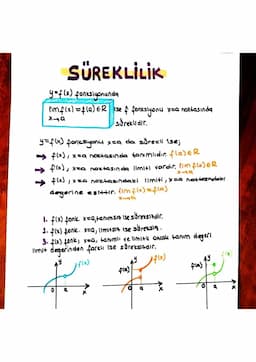 SÜREKLİLİK
y=f(x) fonksiyonunda
lim f(x)=f(a)∈R ise f fonksiyonu x=a noktasında
x→a
süreklidir.
y=f(x) fonksiyonu x=a da sürekli ise;
→ f(x), x=a noktasında tanımlıdır. f(a)∈R
→ f(x), x=a noktasında limiti vardır. lim f(x)∈R
x→a
→ f(x), x=a noktasındaki limiti, x=a noktasındaki
değerine eşittir. lim f(x)=f(a)
x→a
1. f(x) fonk. x=a, tanımsız ise süreksizdir.
2. f(x) fonk. x=a, limitsiz ise süreksiz.
3. f(x) fonk. x=a, tanımlı ve limitli ancak tanım değeri
limit değerinden farklı ise süreksizdir.
y f(x) y f(x) y f(x)
f(a) f(a)
0 a x 0 a x 0 a x